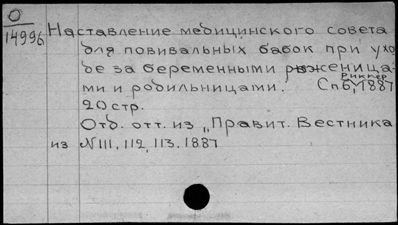 О
14996
Наставление медицинского совета
для повивальных бабок при ухо
де за беременными роженица
ми и родильницами. Спб, Риккер, 1887
20 стр.
Отд. отт. из „Правит. Вестника
из N 111, 112, 113. 1887